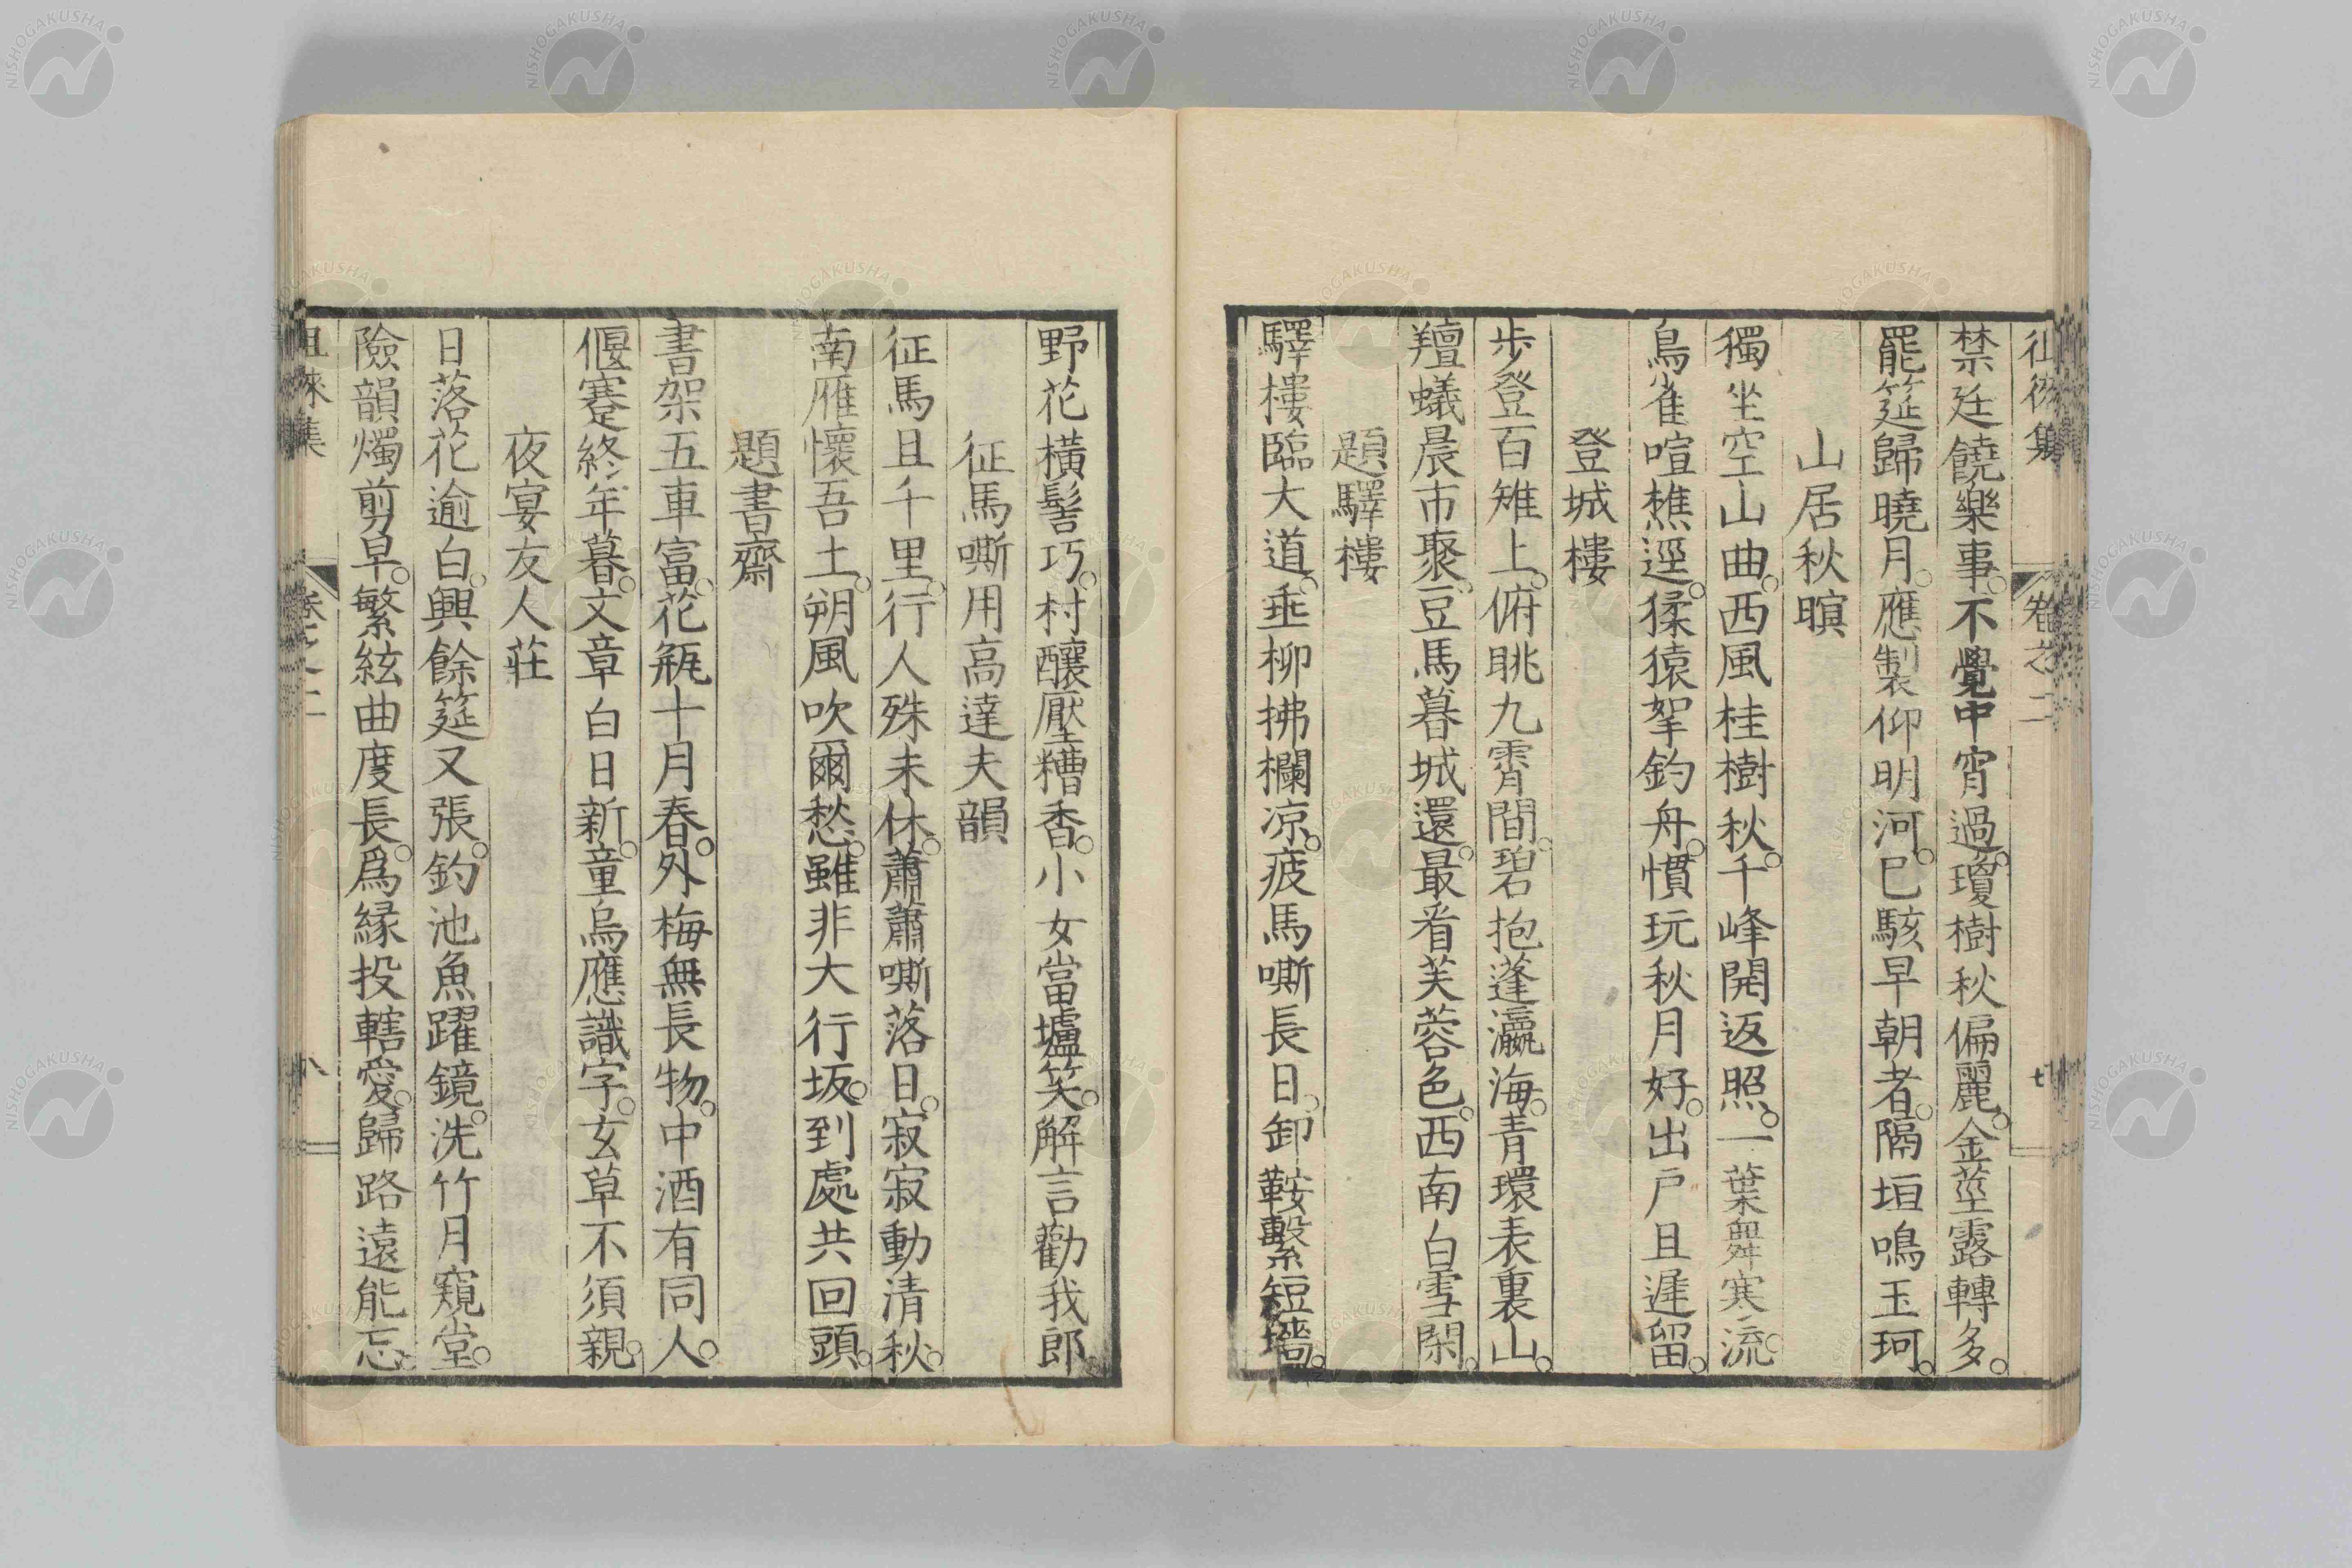 徂徠集 卷之二 七
禁廷饒樂事。不覺中宵過。瓊樹秋偏麗。金莖露轉多。
罷筵歸曉月。應製仰明河。已駭早朝者。隔垣鳴玉珂。
山居秋暝
獨坐空山曲。西風桂樹秋。千峰開返照。一葉舞寒流。
鳥雀喧樵逕。猱猿挐釣舟。慣玩秋月好。出戶且遲留。
登城樓
步登百雉上。俯眺九霄間。碧抱蓬瀛海。青環表裏山。
羶蟻晨市聚。豆馬暮城還。最看芙蓉色。西南白雪閑。
題驛樓
驛樓臨大道。垂柳拂欄凉。疲馬嘶長日。卸鞍繫短墻。
野花橫髻巧。村釀壓糟香。小女當壚笑。解言勸我郎。
征馬嘶用高達夫韻
征馬且千里。行人殊未休。蕭蕭嘶落日。寂寂動清秋。
南雁懷吾土。朔風吹爾愁。雖非大行坂。到處共回頭。
題書齋
書架五車富。花瓶十月春。外梅無長物。中酒有同人。
偃蹇終年暮。文章白日新。童烏應識字。玄草不須親。
夜宴友人莊
日落花逾白。興餘筵又張。釣池魚躍鏡。洗竹月窺堂。
險韻燭剪早。繁絃曲度長。爲緣投轄愛。歸路遠能忘。
徂徠集 卷之二 八
NISHOGAKUSHA